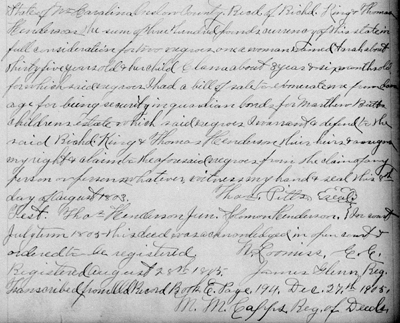 State of No Carolina Onslow County Recd of Richd King & Thomas
Henderson the sum of three hundred pounds currency of this state in
full consideration for two negroes, one a woman named Sarah about
thirty five years old & her child Clansa about 3 years & six months old
for which said negroes I had a bill of sale to exonerate me from
age for being security in guardian bonds for Matthew
childrens estate which said negroes I warrant & defend to the
said Richd King & Thomas Henderson their heirs & assigns
my right & claim to the aforesaid negroes from the claim of any
person or persons whatever witness my hand & seal this
day of August 1803. Thos Pitts Seal
Test. Thos Henderson jun. Simon Henderson.
July term 1805 this deed was acknowledged in open court &
ordered to be registered W. C. C.
Registered August 28th 1805. James Glenn Reg.
Transcribed from Old Record Book E. Page 194, Dec. 27th 1905.
M. M. Capps Reg. of Deeds